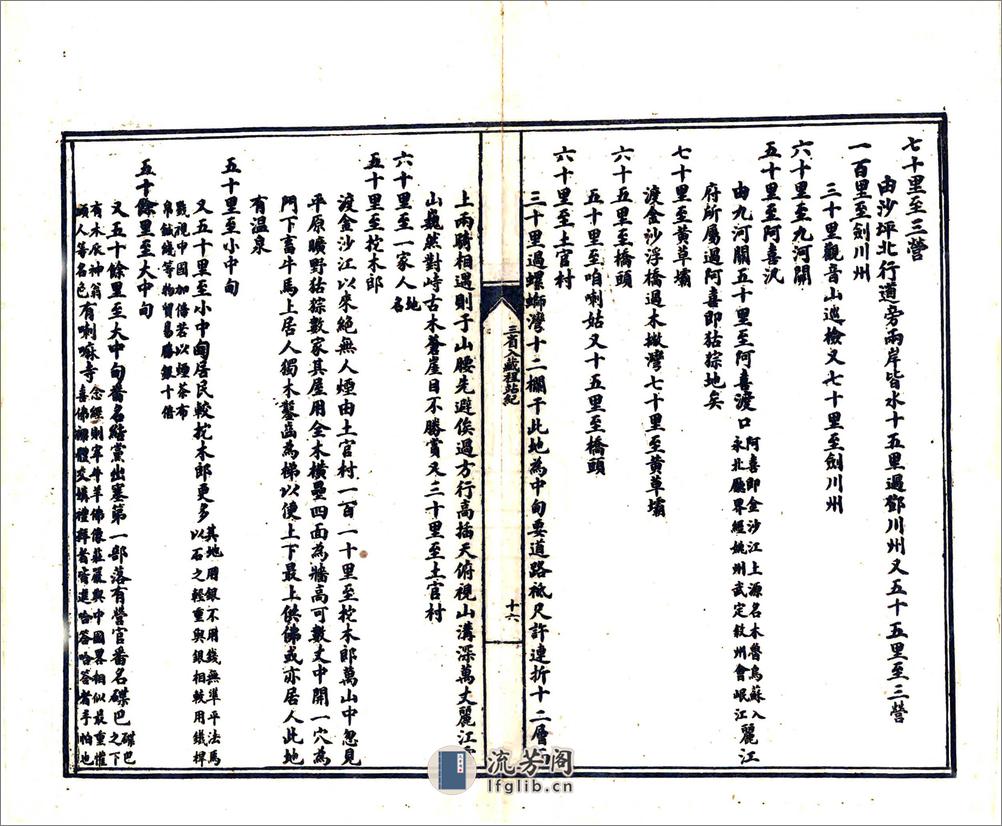 七十里至三營
由沙坪北行道旁兩岸皆水十五里過鄧川州又五十五里至三營
一百里至劍川州
三十里觀音山巡檢又七十里至劍川州
六十里至九河關
五十里至阿喜汛
由九河關五十里至阿喜渡口阿喜即金沙江上源名木魯烏蘇入永北廳界經姚州武定敘州會岷江麗江
府所屬過阿喜即㺐猔地矣
七十里至黃草壩
渡金沙浮橋過木撒灣七十里至黃草壩
六十五里至橋頭
五十里至咱喇姑又十五里至橋頭
六十里至土官村
三十里過螺螄灣十二欄干此地為中甸要道路祗尺許連折十二層而
三省入藏程站紀
十六
上兩騎相遇則于山腰先避俟過方行高插天俯視山溝深萬丈麗江雪
山巍然對峙古木蒼崖目不勝賞又三十里至土官村
六十里至一家人地名
五十里至挖木郎
渡金沙江以來絕無人煙由土官村一百一十里至挖木郎萬山中忽見
平原曠野㺐猔數家其屋用全木橫疊四面為牆高可數丈中開一穴為
門下畜牛馬上居人獨木鑿齒為梯以便上下最上供佛或亦居人此地
有温泉
五十里至小中甸
又五十里至小中甸居民較挖木郎更多其地用銀不用錢無準平法馬以石之輕重與銀相較用鐵桿
戥視中國加倍若以煙茶布帛鍼綫等物貿易勝銀十倍
五十餘里至大中甸
又五十餘里至大中甸番名結黨出塞第一部落有營官番名碟巴碟巴之下
有木辰神翁頭人等名色有喇嘛寺念經則宰牛羊佛像莊嚴與中國畧相似最重懽喜佛裸體交媾禮拜者寄進哈答哈答者手怕也
流芳阁
lfglib.cn